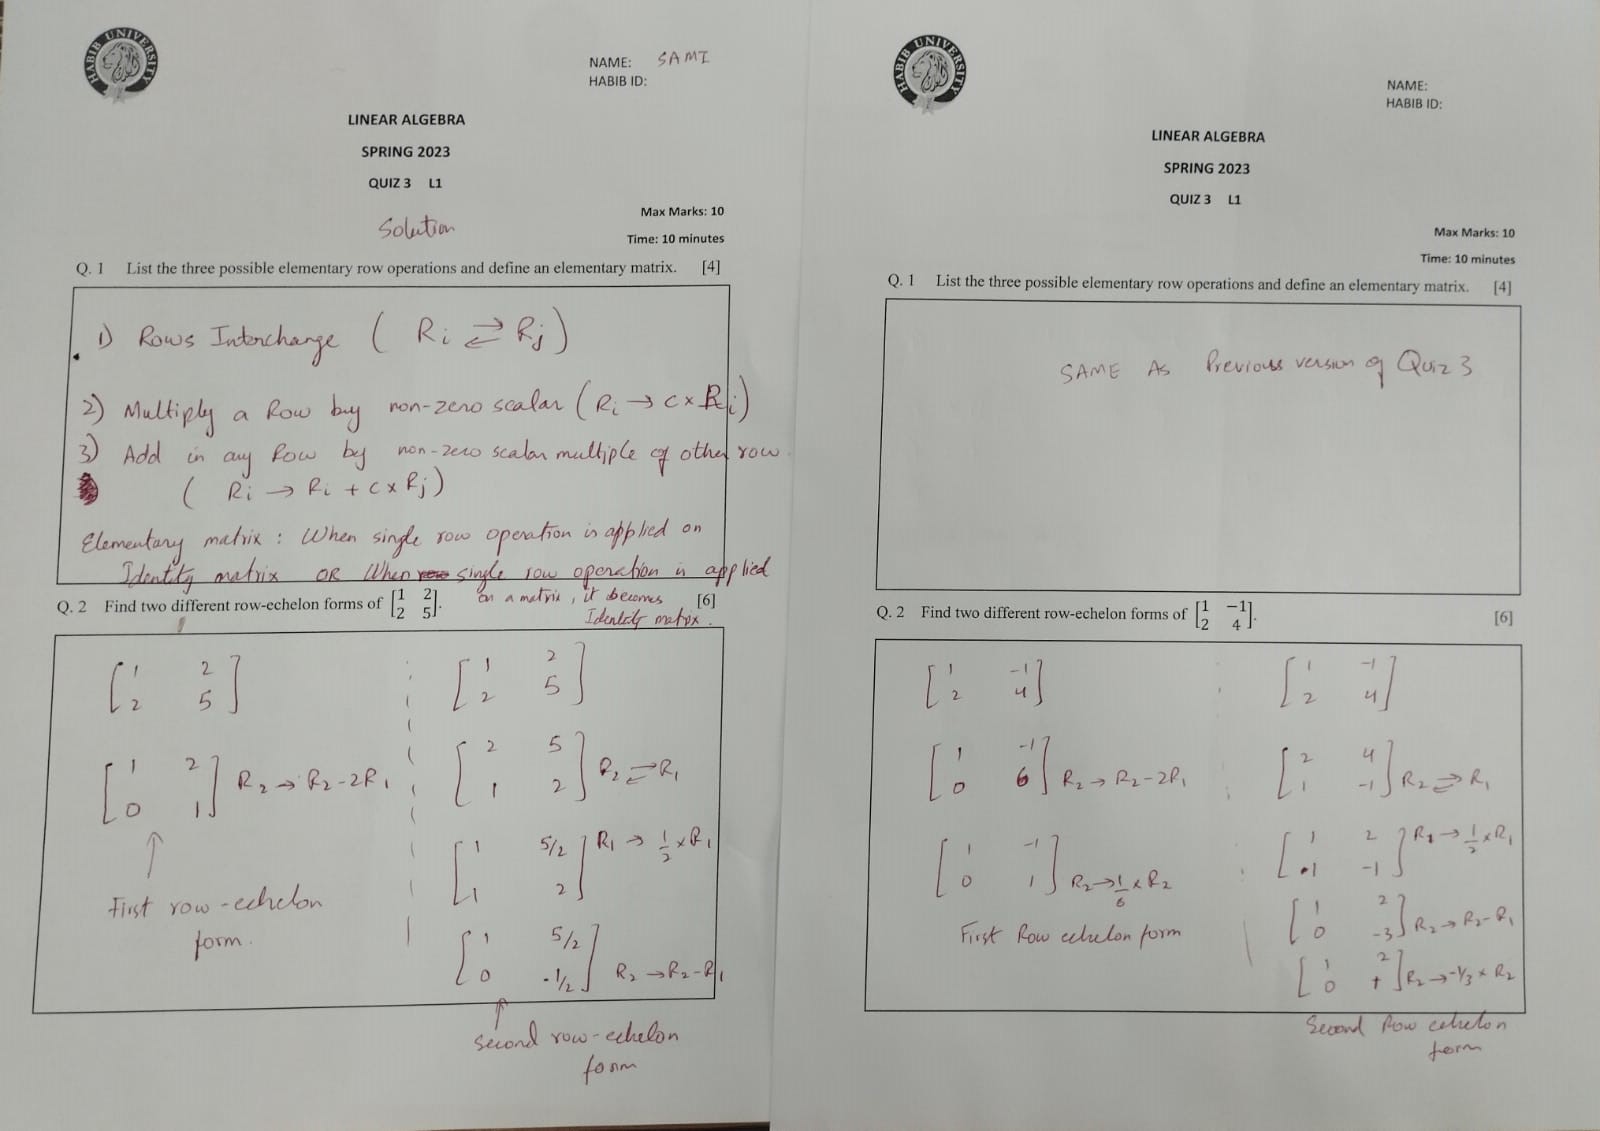 HABIB UNIVERSITY
NAME: SAMI
HABIB ID:
LINEAR ALGEBRA
SPRING 2023
QUIZ 3 L1
Solution
Max Marks: 10
Time: 10 minutes
Q. 1 List the three possible elementary row operations and define an elementary matrix. [4]
1) Rows Interchange ( Ri ⇄ Rj )
2) Multiply a Row by non-zero scalar ( Ri → c × Ri )
3) Add in any Row by non-zero scalar multiple of other row.
( Ri → Ri + c × Rj )
Elementary matrix : When single row operation is applied on
Identity matrix OR When single row operation is applied
on a matrix, it becomes
Identity matrix.
Q. 2 Find two different row-echelon forms of [1 2
2 5]. [6]
[1 2
2 5]
[1 2
0 1] R2 → R2 - 2R1
First row-echelon
form.
[1 2
2 5]
[2 5
1 2] R2 ⇄ R1
[1 5/2
1 2] R1 → 1/2 × R1
[1 5/2
0 -1/2] R2 → R2 - R1
Second row-echelon
form
HABIB UNIVERSITY
NAME:
HABIB ID:
LINEAR ALGEBRA
SPRING 2023
QUIZ 3 L1
Max Marks: 10
Time: 10 minutes
Q. 1 List the three possible elementary row operations and define an elementary matrix. [4]
SAME AS Previous version of Quiz 3
Q. 2 Find two different row-echelon forms of [1 -1
2 4]. [6]
[1 -1
2 4]
[1 -1
0 6] R2 → R2 - 2R1
[1 -1
0 1] R2 → 1/6 × R2
First Row echelon form
[1 -1
2 4]
[2 4
1 -1] R2 ⇄ R1
[1 2
1 -1] R1 → 1/2 × R1
[1 2
0 -3] R2 → R2 - R1
[1 2
0 1] R2 → -1/3 × R2
Second Row echelon
form